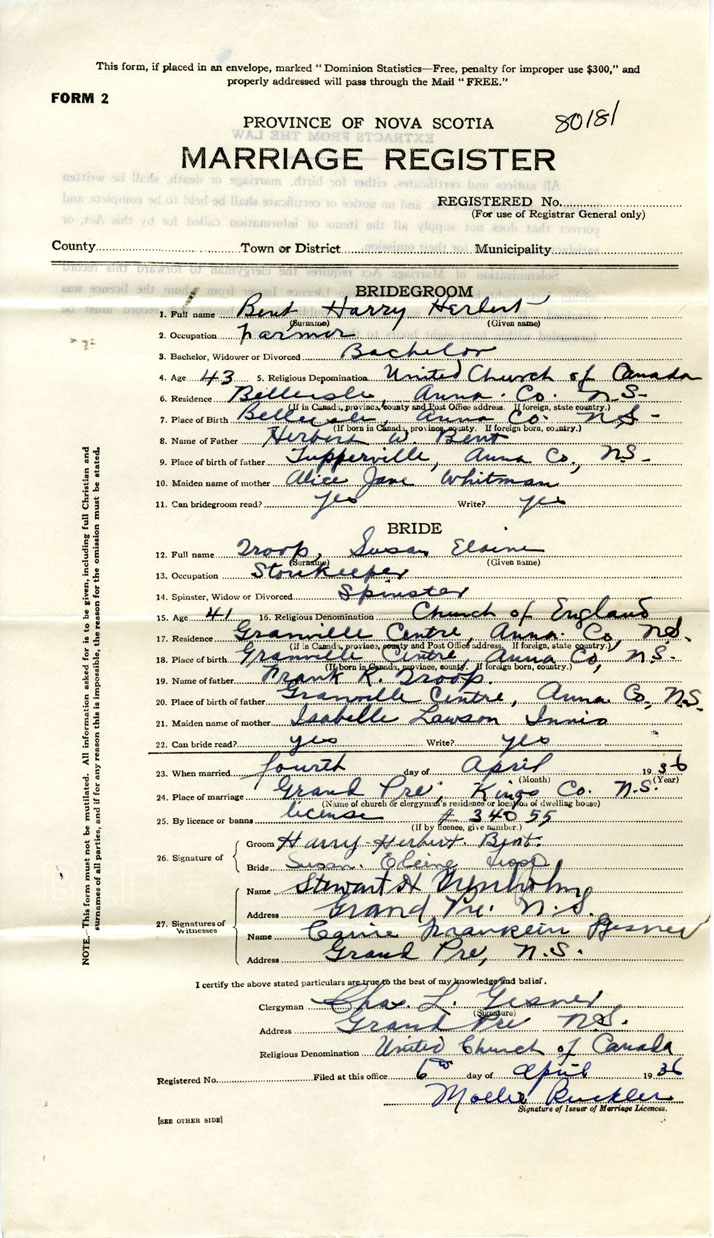 This form, if placed in an envelope, marked "Dominion Statistics—Free, penalty for improper use $300," and
properly addressed will pass through the Mail "FREE."
FORM 2
80181
PROVINCE OF NOVA SCOTIA
MARRIAGE REGISTER
REGISTERED No.
(For use of Registrar General only)
County Town or District Municipality
BRIDEGROOM
1. Full name Bent Harry Herbert
(Surname) (Given name)
2. Occupation Farmer
3. Bachelor, Widower or Divorced Bachelor
4. Age 43 5. Religious Denomination United Church of Canada
6. Residence Belleisle, Anna. Co. N.S.
(If in Canada, province, county and Post Office address. If foreign, state country.)
7. Place of Birth Belleisle, Anna Co. N.S.
(If born in Canada, province, county. If foreign born, country.)
8. Name of Father Herbert W. Bent
9. Place of birth of father Tupperville, Anna Co, N.S.
10. Maiden name of mother Alice Jane Whitman
11. Can bridegroom read? yes Write? yes
BRIDE
12. Full name Troop, Susan Elaine
(Surname) (Given name)
13. Occupation Storekeeper
14. Spinster, Widow or Divorced Spinster
15. Age 41 16. Religious Denomination Church of England
17. Residence Granville Centre, Anna. Co, N.S.
(If in Canada, province, county and Post Office address. If foreign, state country.)
18. Place of birth Granville Centre, Anna Co, N.S.
(If born in Canada, province, county. If foreign born, country.)
19. Name of father Frank R. Troop.
20. Place of birth of father Granville Centre, Anna Co, N.S.
21. Maiden name of mother Isabelle Lawson Innis
22. Can bride read? yes Write? yes
23. When married fourth day of April 1936
(Month) (Year)
24. Place of marriage Grand Pre, Kings Co. N.S.
(Name of church or clergyman's residence or location of dwelling house)
25. By licence or banns license # 34055
(If by licence, give number.)
26. Signature of Groom Harry Herbert Bent.
Bride Susan Elaine Troop
27. Signatures of Witnesses
Name Stewart H Trenholm
Address Grand Pre. N.S.
Name Carrie Franklin Gesner
Address Grand Pre, N.S.
I certify the above stated particulars are true to the best of my knowledge and belief.
Clergyman Chas. L. Gesner
(Signature)
Address Grand Pre N.S.
Religious Denomination United Church of Canada
Registered No. Filed at this office 6th day of April 1936
Mollie Buckler
Signature of Issuer of Marriage Licences.
[SEE OTHER SIDE]
NOTE.—This form must not be mutilated. All information asked for is to be given, including full Christian and
surnames of all parties, and if for any reason this is impossible, the reason for the omission must be stated.